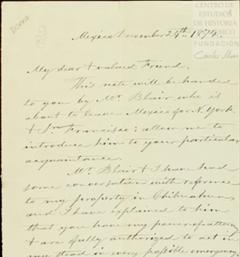 CENTRO DE
ESTUDIOS
DE HISTORIA
DE MÉXICO
FUNDACIÓN
Carlos Slim
Mexico November 24th 1874
My dear & valued Friend,
This note will be handed
to you by Mr Blair who is
about to leave Mexico for N. York
& Sn Francisco: allow me to
introduce him to your particular
acquaintance.
Mr Blair & I have had
some conversation with reference
to my property in Chihuahua,
and I have explained to him
that you have my power of attorney
& are fully authorized to act in
my stead in every possible emergency